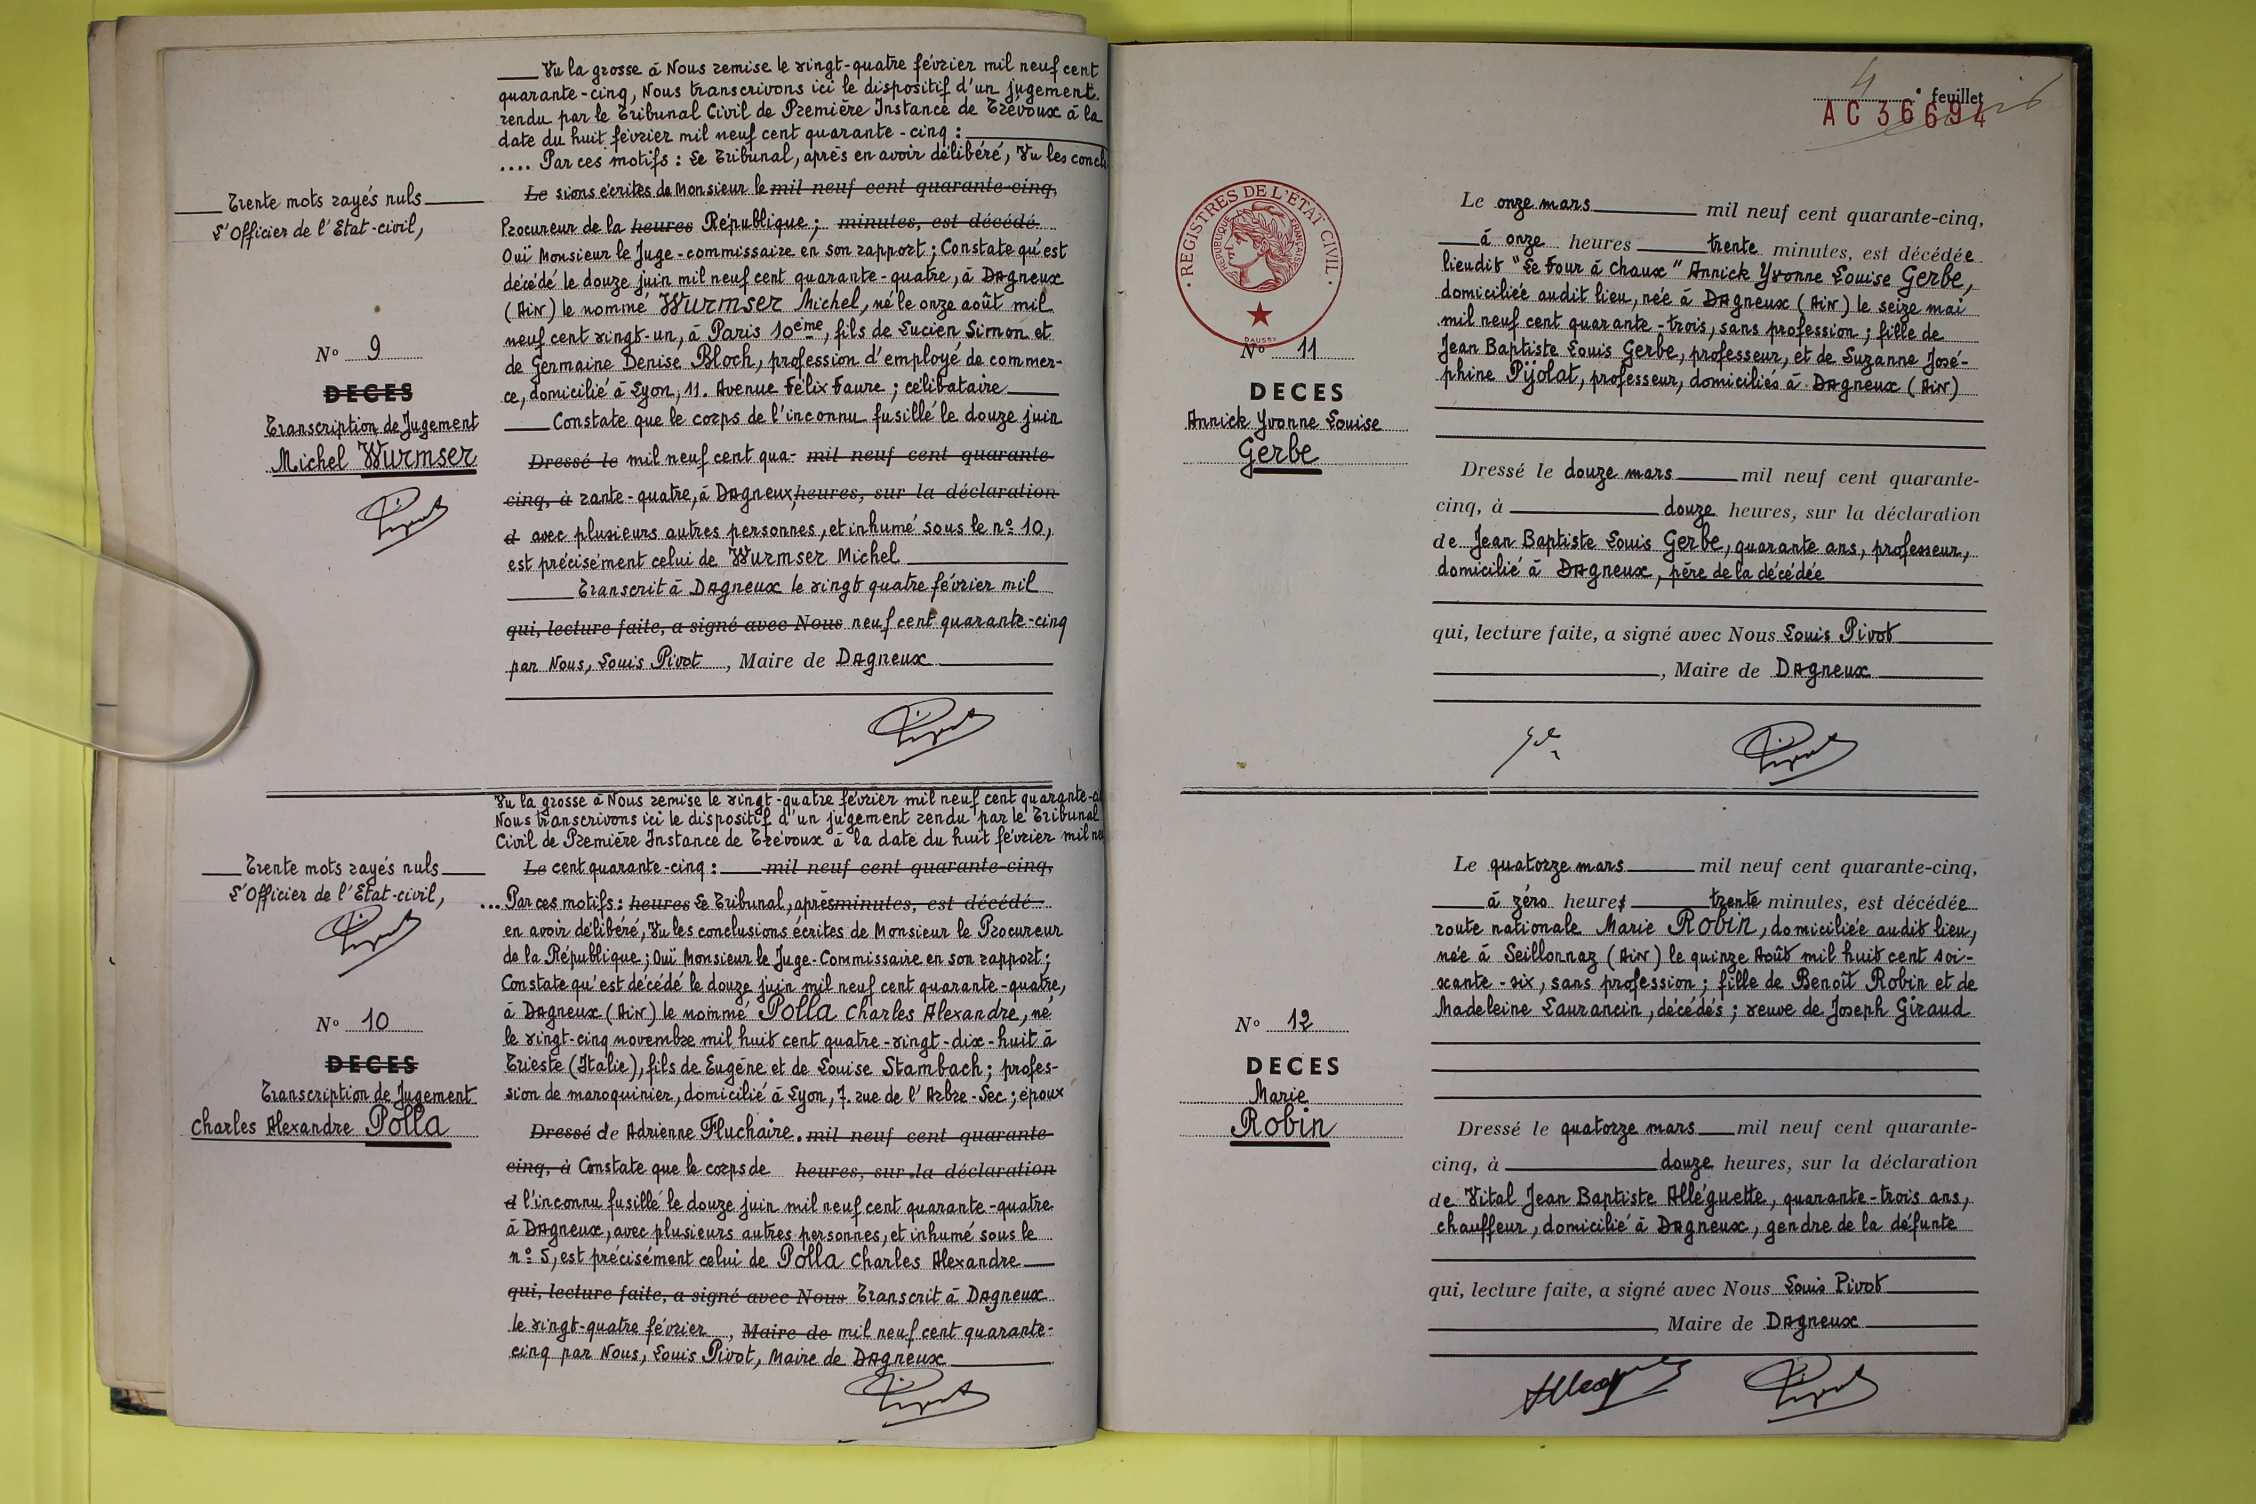 Vu la grosse à Nous remise le vingt-quatre février mil neuf cent
quarante-cinq, Nous transcrivons ici le dispositif d'un jugement
rendu par le Tribunal Civil de Première Instance de Trévoux à la
date du huit février mil neuf cent quarante-cinq :
.... Par ces motifs : Le Tribunal, après en avoir délibéré, Vu les conclu
Le sions écrites de Monsieur le mil neuf cent quarante-cinq,
Procureur de la heures République ; minutes, est décédé
Ouï Monsieur le Juge-commissaire en son rapport ; Constate qu'est
décédé le douze juin mil neuf cent quarante-quatre, à Dagneux
(Ain) le nommé Wurmser Michel, né le onze août mil
neuf cent vingt-un, à Paris 10ème, fils de Lucien Simon et
de Germaine Denise Bloch, profession d'employé de commer-
ce, domicilié à Lyon, 11. Avenue Félix Faure ; célibataire
Constate que le corps de l'inconnu fusillé le douze juin
Dressé le mil neuf cent qua- mil neuf cent quarante-
cinq, à rante-quatre, à Dagneux, heures, sur la déclaration
d avec plusieurs autres personnes, et inhumé sous le nº 10,
est précisément celui de Wurmser Michel
Transcrit à Dagneux le vingt quatre février mil
qui, lecture faite, a signé avec Nous neuf cent quarante-cinq
par Nous, Louis Pivot, Maire de Dagneux
Trente mots rayés nuls
L'Officier de l'Etat-civil,
Nº 9
DECES
Transcription de Jugement
Michel Wurmser
Pivot
Pivot
Vu la grosse à Nous remise le vingt-quatre février mil neuf cent quarante-ci
Nous transcrivons ici le dispositif d'un jugement rendu par le Tribunal
Civil de Première Instance de Trévoux à la date du huit février mil neu
Le cent quarante-cinq : mil neuf cent quarante-cinq,
... Par ces motifs : heures Le Tribunal, après minutes, est décédé
en avoir délibéré, Vu les conclusions écrites de Monsieur le Procureur
de la République ; Ouï Monsieur le Juge-Commissaire en son rapport ;
Constate qu'est décédé le douze juin mil neuf cent quarante-quatre,
à Dagneux (Ain) le nommé Polla Charles Alexandre, né
le vingt-cinq novembre mil huit cent quatre-vingt-dix-huit à
Trieste (Italie), fils de Eugène et de Louise Stambach ; profes-
sion de maroquinier, domicilié à Lyon, 7. rue de l'Arbre-Sec ; époux
Dressé de Adrienne Fluchaire. mil neuf cent quarante-
cinq, à Constate que le corps de heures, sur la déclaration
d l'inconnu fusillé le douze juin mil neuf cent quarante-quatre
à Dagneux, avec plusieurs autres personnes, et inhumé sous le
nº 5, est précisément celui de Polla Charles Alexandre
qui, lecture faite, a signé avec Nous Transcrit à Dagneux
le vingt-quatre février, Maire de mil neuf cent quarante-
cinq par Nous, Louis Pivot, Maire de Dagneux
Trente mots rayés nuls
L'Officier de l'Etat-civil,
Pivot
Nº 10
DECES
Transcription de Jugement
Charles Alexandre Polla
Pivot
4 e feuillet
AC 36694
REGISTRES DE L'ÉTAT CIVIL
RÉPUBLIQUE FRANÇAISE
DAUSSY
Nº 11
DECES
Annick Yvonne Louise
Gerbe
Le onze mars mil neuf cent quarante-cinq,
à onze heures trente minutes, est décédée
lieudit "Le Four à Chaux" Annick Yvonne Louise Gerbe,
domiciliée audit lieu, née à Dagneux (Ain) le seize mai
mil neuf cent quarante-trois, sans profession ; fille de
Jean Baptiste Louis Gerbe, professeur, et de Suzanne José-
phine Pijolat, professeur, domiciliés à Dagneux (Ain)
Dressé le douze mars mil neuf cent quarante-
cinq, à douze heures, sur la déclaration
de Jean Baptiste Louis Gerbe, quarante ans, professeur,
domicilié à Dagneux, père de la décédée
qui, lecture faite, a signé avec Nous Louis Pivot
, Maire de Dagneux
Pivot
Nº 12
DECES
Marie
Robin
Le quatorze mars mil neuf cent quarante-cinq,
à zéro heures trente minutes, est décédée
route nationale Marie Robin, domiciliée audit lieu,
née à Seillonnaz (Ain) le quinze Août mil huit cent soi-
xante-six, sans profession ; fille de Benoît Robin et de
Madeleine Laurancin, décédés ; veuve de Joseph Giraud
Dressé le quatorze mars mil neuf cent quarante-
cinq, à douze heures, sur la déclaration
de Vital Jean Baptiste Alléguette, quarante-trois ans,
chauffeur, domicilié à Dagneux, gendre de la défunte
qui, lecture faite, a signé avec Nous Louis Pivot
, Maire de Dagneux
Pivot